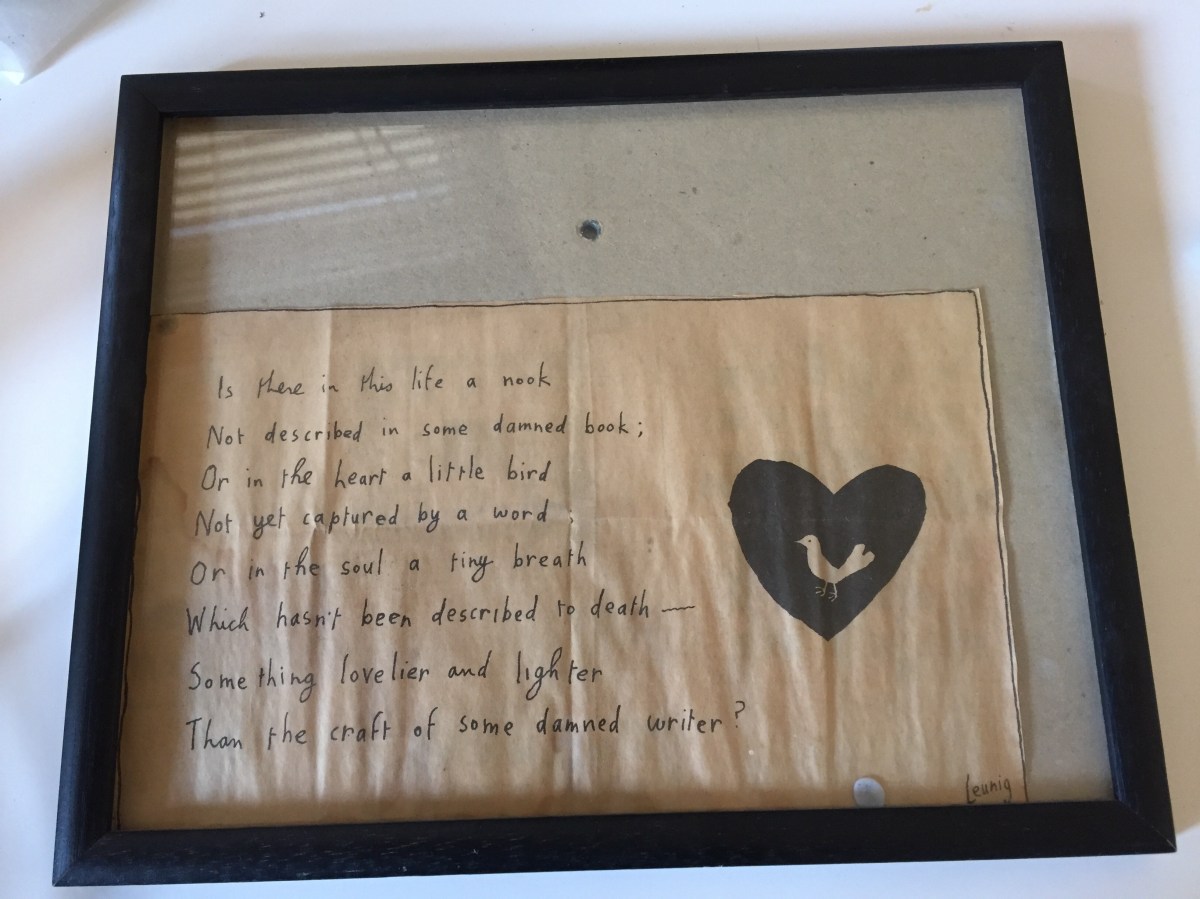 Is there in this life a nook
Not described in some damned book;
Or in the heart a little bird
Not yet captured by a word;
Or in the soul a tiny breath
Which hasn't been described to death —
Something lovelier and lighter
Than the craft of some damned writer?
Leunig